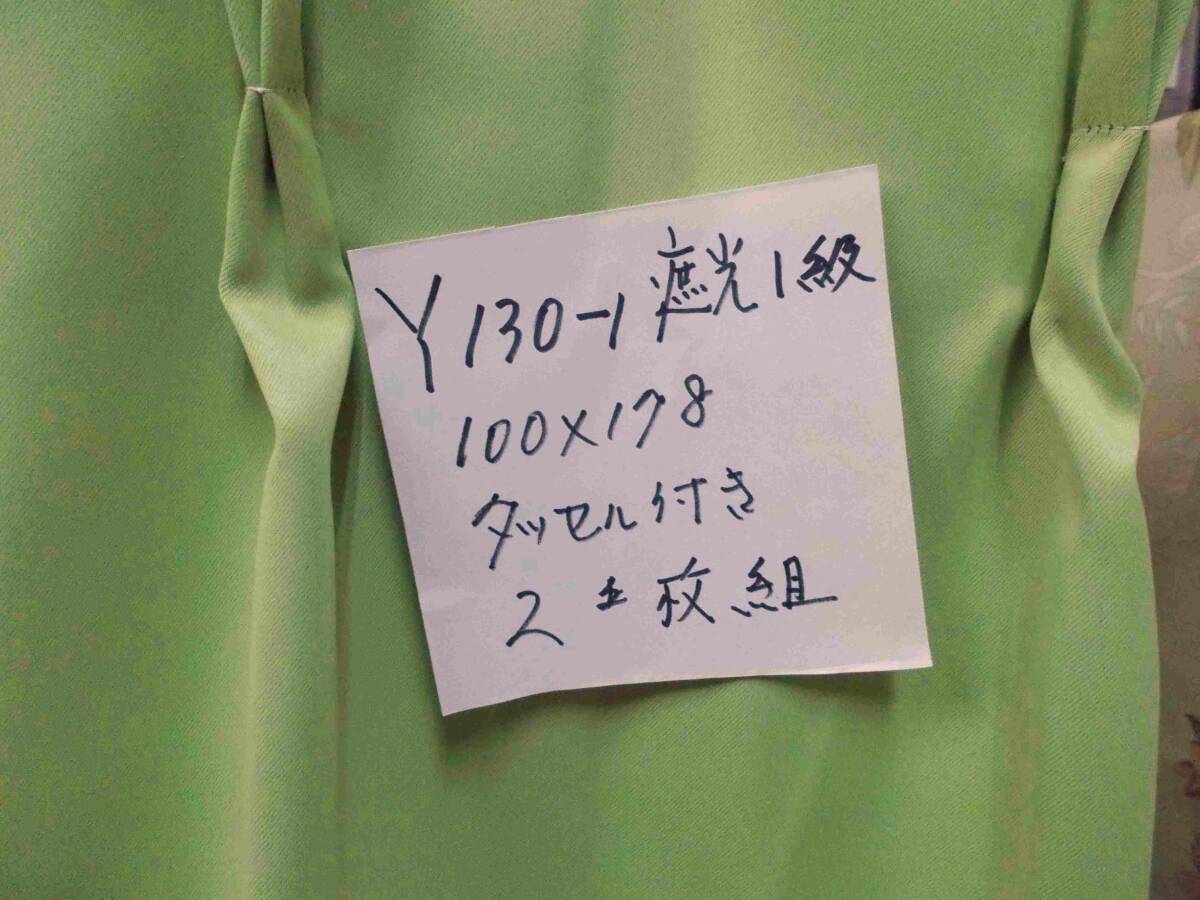 Y130-1 遮光1級
100×178
タッセル付き
2枚組